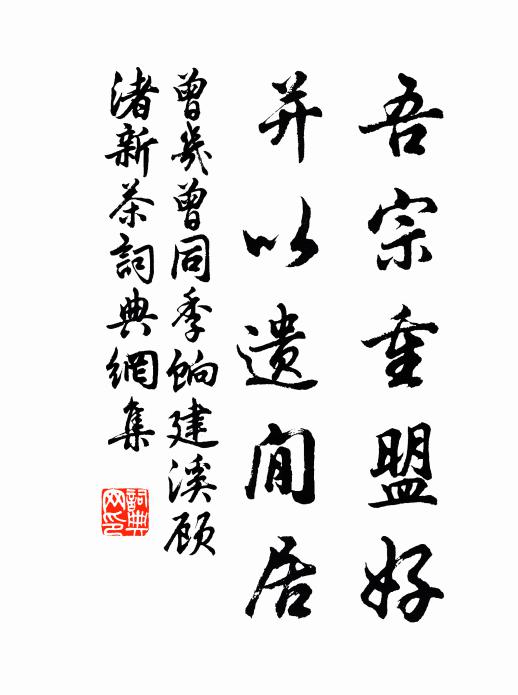 吾宗重盟好
并以遗閒居
曾几曾同季餉建溪顾
渚新茶詞典網集
詞典網印